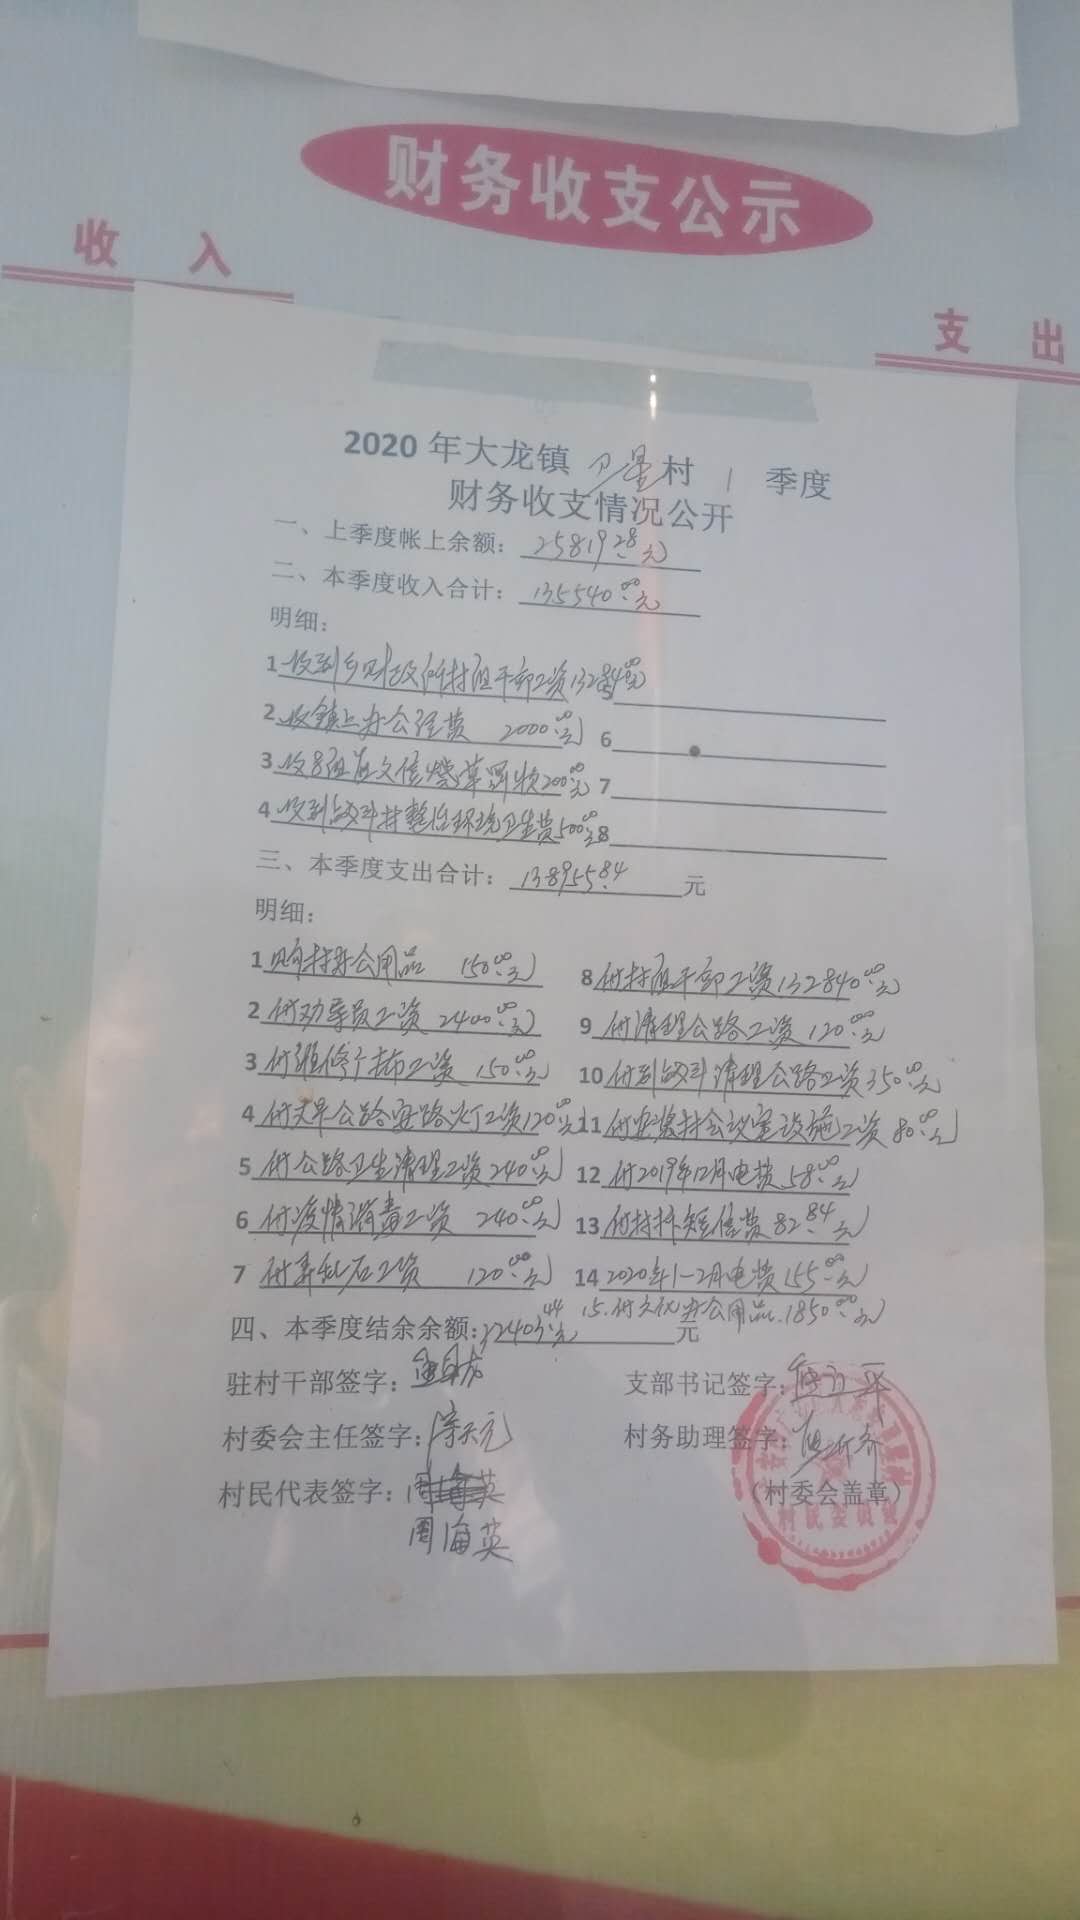 财务收支公示
收入
支出
2020年大龙镇卫星村 1 季度
财务收支情况公开
一、上季度帐上余额：25819.28元
二、本季度收入合计：135540.00元
明细：
1 收到乡财政所村组干部工资132840.00元 5
2 收镇上办公经费 2000.00元 6
3 收8组 文信烧草罚款200.00元 7
4 收到 村整治环境卫生费500.00元 8
三、本季度支出合计：138955.84元
明细：
1 购村办公用品 150.00元 8 付村组干部工资132840.00元
2 付劝导员工资 2400.00元 9 付清理公路工资 120.00元
3 付维修广播工资 150.00元 10 付到 清理公路工资350.00元
4 付 公路安路灯工资120.00元 11 付安装村会议室设施工资 80.00元
5 付公路卫生清理工资240.00元 12 付2019年12月电费 58.00元
6 付疫情消毒工资 240.00元 13 付村 短信费 82.84元
7 付 工资 120.00元 14 2020年1-2月电费155.00元
15.付 办公用品.1850.00元
四、本季度结余余额：22403.44元 元
驻村干部签字： 支部书记签字：
村委会主任签字： 村务助理签字：
村民代表签字： （村委会盖章）
周海英
村民委员会